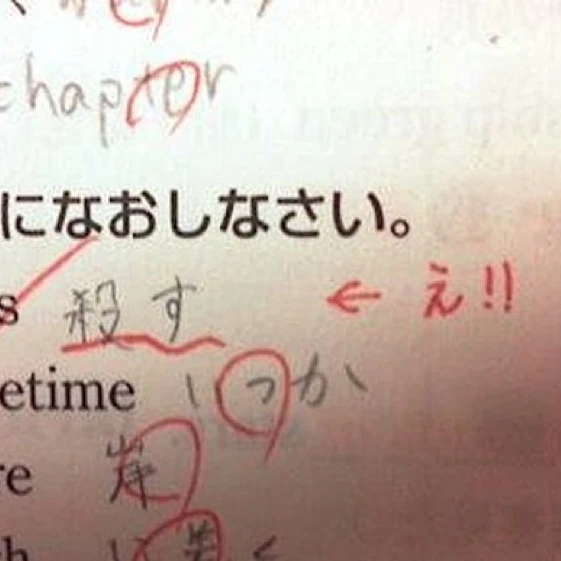 chapter
になおしなさい。
s 殺す ← え!!
etime いつか
re 岸